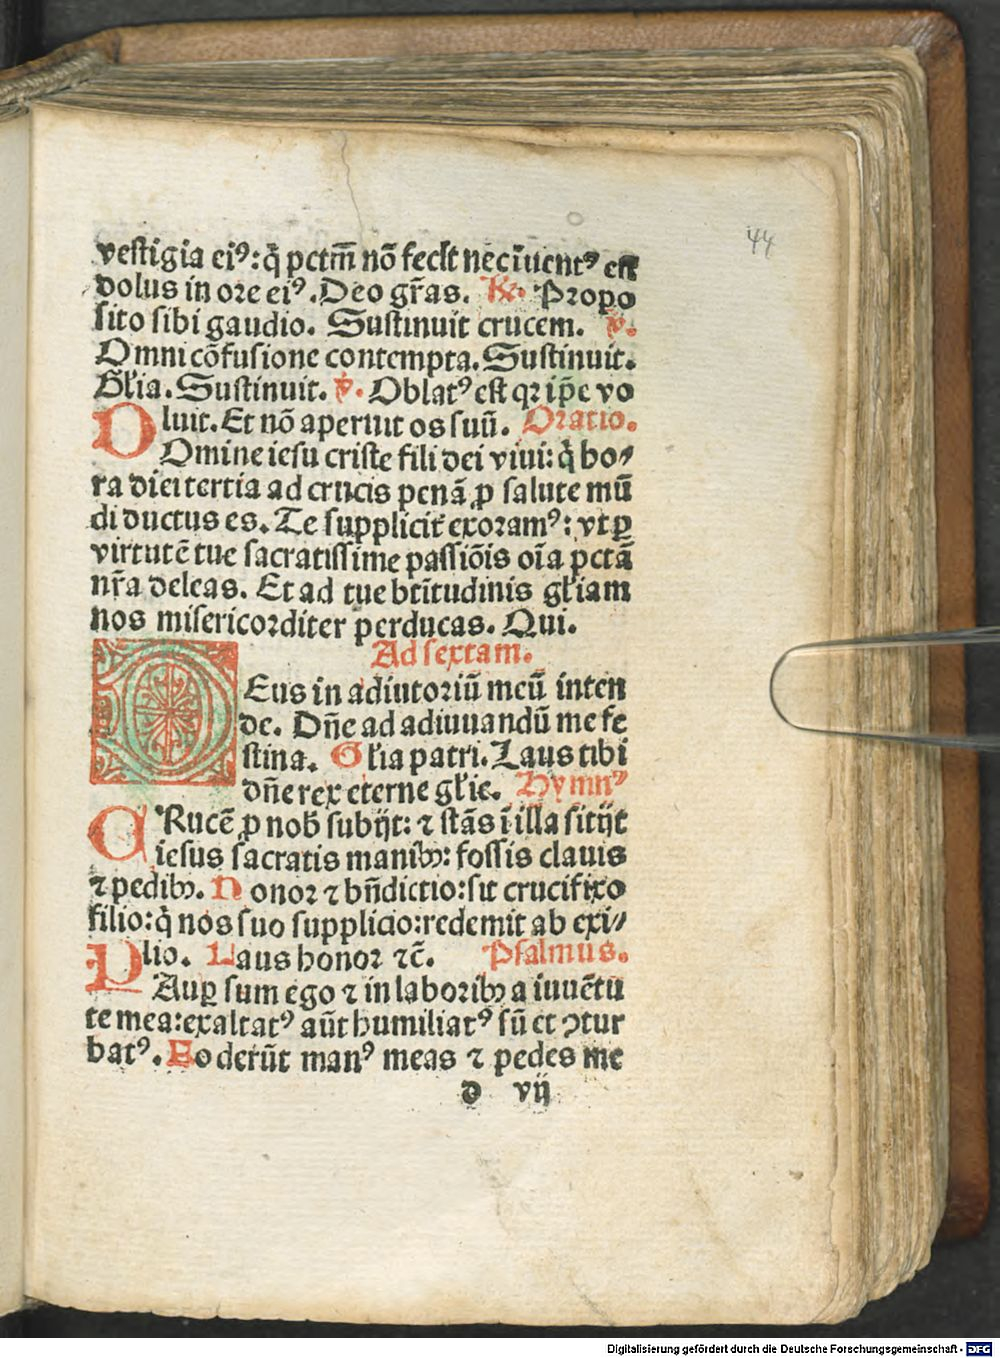 44
vestigia eiꝰ: q̄ pctm̄ nō fecit nec īuentꝰ est
dolus in ore eiꝰ. Deo gr̄as. ℟. Propo
sito sibi gaudio. Sustinuit crucem. ℣.
Omni cōfusione contempta. Sustinuit.
Gl̄ia. Sustinuit. ℣. Oblatꝰ est qꝛ ip̄e vo
luit. Et nō aperuit os suū. Oratio.
DOmine iesu criste fili dei viui: q̄ ho⸗
ra diei tertia ad crucis penā ꝓ salute mū
di ductus es. Te suppliciť exoramꝰ: vt ꝑ
virtutē tue sacratissime passiōis oīa pctā
nr̄a deleas. Et ad tue btītudinis gl̄iam
nos misericorditer perducas. Qui.
Ad sextam.
DEus in adiutoriū meū inten
de. Dn̄e ad adiuuandū me fe
stina. Gl̄ia patri. Laus tibi
dn̄e rex eterne gl̄ie. Hymnꝰ
CRucē ꝓ nob̄ subijt: ⁊ stās ī illa sitijt
iesus sacratis manibꝫ: fossis clauis
⁊ pedibꝫ. Honor ⁊ bn̄dictio: sit crucifixo
filio: q̄ nos suo supplicio: redemit ab exi⸗
lio. Laus honor ⁊c̄. Psalmus.
PAuꝑ sum ego ⁊ in laboribꝫ a iuuētu
te mea: exaltatꝰ aūt humiliatꝰ sū et ꝯtur
batꝰ. Foderūt manꝰ meas ⁊ pedes me
d vij
Digitalisierung gefördert durch die Deutsche Forschungsgemeinschaft - DFG